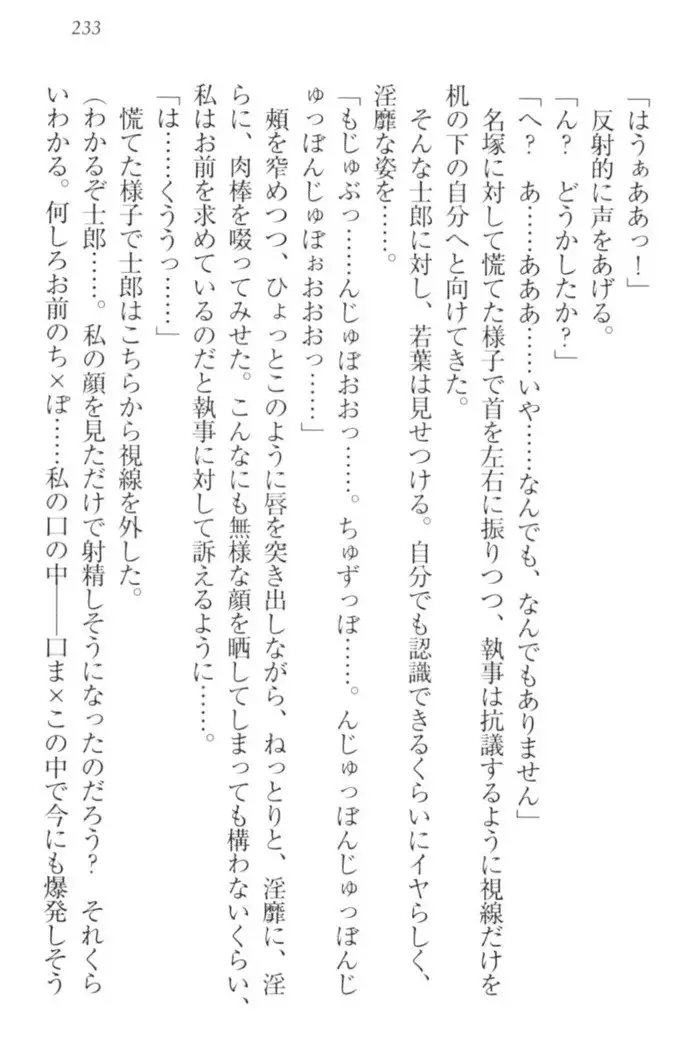 233
「はうぁああっ！」
　反射的に声をあげる。
「ん？　どうかしたか？」
「へ？　あ……あああ……いや……なんでも、なんでもありません」
　名塚に対して慌てた様子で首を左右に振りつつ、執事は抗議するように視線だけを
机の下の自分へと向けてきた。
　そんな士郎に対し、若葉は見せつける。自分でも認識できるくらいにイヤらしく、
淫靡な姿を……。
「もじゅぶっ……んじゅぽおおっ……。ちゅずっぽ……。んじゅっぽんじゅっぽんじ
ゅっぽんじゅぽぉおおおっ……」
　頬を窄めつつ、ひょっとこのように唇を突き出しながら、ねっとりと、淫靡に、淫
らに、肉棒を啜ってみせた。こんなにも無様な顔を晒してしまっても構わないくらい、
私はお前を求めているのだと執事に対して訴えるように……。
「は……くううっ……」
　慌てた様子で士郎はこちらから視線を外した。
（わかるぞ士郎……。私の顔を見ただけで射精しそうになったのだろう？　それくら
いわかる。何しろお前のち×ぽ……私の口の中――口ま×この中で今にも爆発しそう